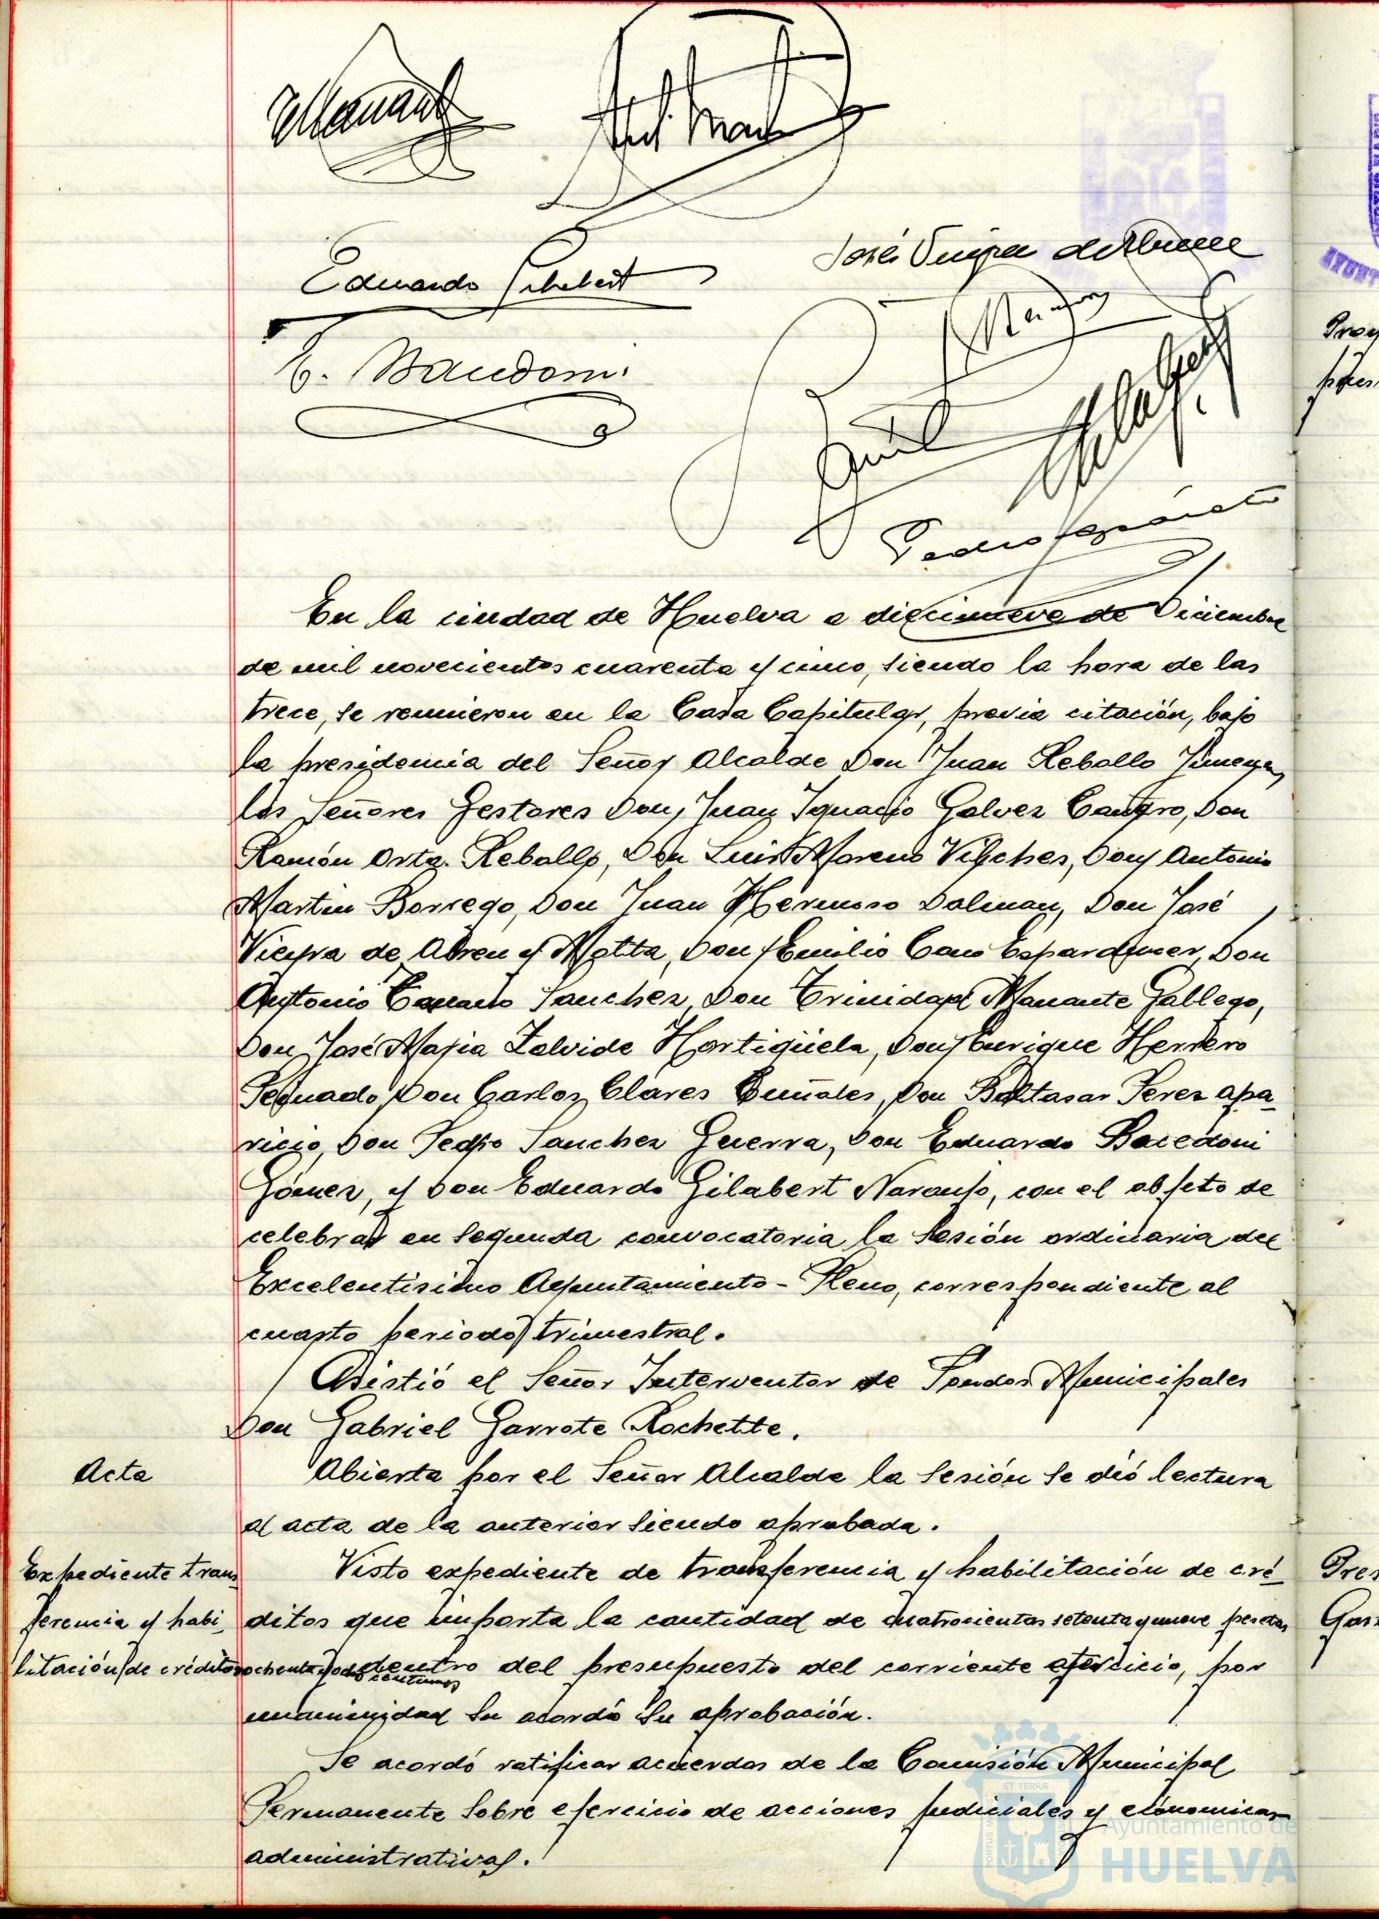 Eduardo Gilabert
José Vieyra de Abreu
E. Bacedoni
Pedro
En la ciudad de Huelva a diecinueve de Diciembre
de mil novecientos cuarenta y cinco, siendo la hora de las
trece, se reunieron en la Casa Capitular, previa citación, bajo
la presidencia del Señor Alcalde Don Juan Rebollo Jimenez,
los Señores Gestores Don Juan Ignacio Galvez Cañero, Don
Ramón Orta Rebollo, Don Luis Moreno Vilches, Don Antonio
Martin Borrego, Don Juan Hermoso Dolman, Don José
Vieyra de Abreu y Motta, Don Emilio Cano Esparducer, Don
Antonio Sanchez, Don Trinidad Manante Gallego,
Don José Maria Zalvide Hortigüela, Don Enrique Herrero
Don Carlos Clares Don Baltasar Perez Apa-
ricio, Don Pedro Sanchez Guerra, Don Eduardo Bacedoni
Gómez, y Don Eduardo Gilabert Naranjo, con el objeto de
celebrar en segunda convocatoria la sesión ordinaria del
Excelentisimo Ayuntamiento - Pleno, correspondiente al
cuarto periodo trimestral.
Asistió el Señor Interventor de Fondos Municipales
Don Gabriel Garrote Rochette.
Acta
Abierta por el Señor Alcalde la sesión se dió lectura
al acta de la anterior siendo aprobada.
Expediente trans
ferencia y habi
litación de créditos
Visto expediente de transferencia y habilitación de cré-
ditos que importa la cantidad de cuatrocientas setenta y nueve pesetas
ochenta y dos centimos dentro del presupuesto del corriente ejercicio, por
unanimidad su acordó su aprobación.
Se acordó ratificar acuerdos de la Comisión Municipal
Permanente sobre ejercicio de acciones judiciales y económicas
administrativas.
Ayuntamiento de
HUELVA